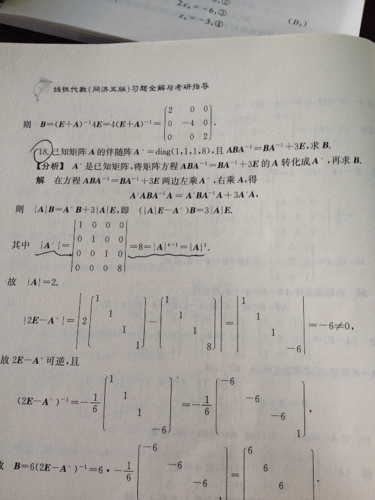 2x₃=-6,③
x₄=-3,④
(B₁)
线性代数(同济五版)习题全解与考研指导
则 B=(E+A)⁻¹4E=4(E+A)⁻¹=
2 0 0
0 -4 0
0 0 2
.
18. 已知矩阵A的伴随阵A*=diag(1,1,1,8),且ABA⁻¹=BA⁻¹+3E,求B.
【分析】 A*是已知矩阵,将矩阵方程ABA⁻¹=BA⁻¹+3E的A转化成A*,再求B.
解 在方程ABA⁻¹=BA⁻¹+3E两边左乘A*,右乘A,得
A*ABA⁻¹A=A*BA⁻¹A+3A*A,
则 |A|B=A*B+3|A|E,即 (|A|E-A*)B=3|A|E.
其中 |A*|=
1 0 0 0
0 1 0 0
0 0 1 0
0 0 0 8
=8=|A|⁴⁻¹=|A|³.
故 |A|=2.
|2E-A*|=
2
1
1
1
1
-
1
1
1
8
=
1
1
1
-6
=-6≠0,
故2E-A*可逆,且
(2E-A*)⁻¹=-1/6
1
1
1
=-1/6
-6
-6
-6
1
,
B=6(2E-A*)⁻¹=6·-1/6
-6
-6
-6
=
6
6
6